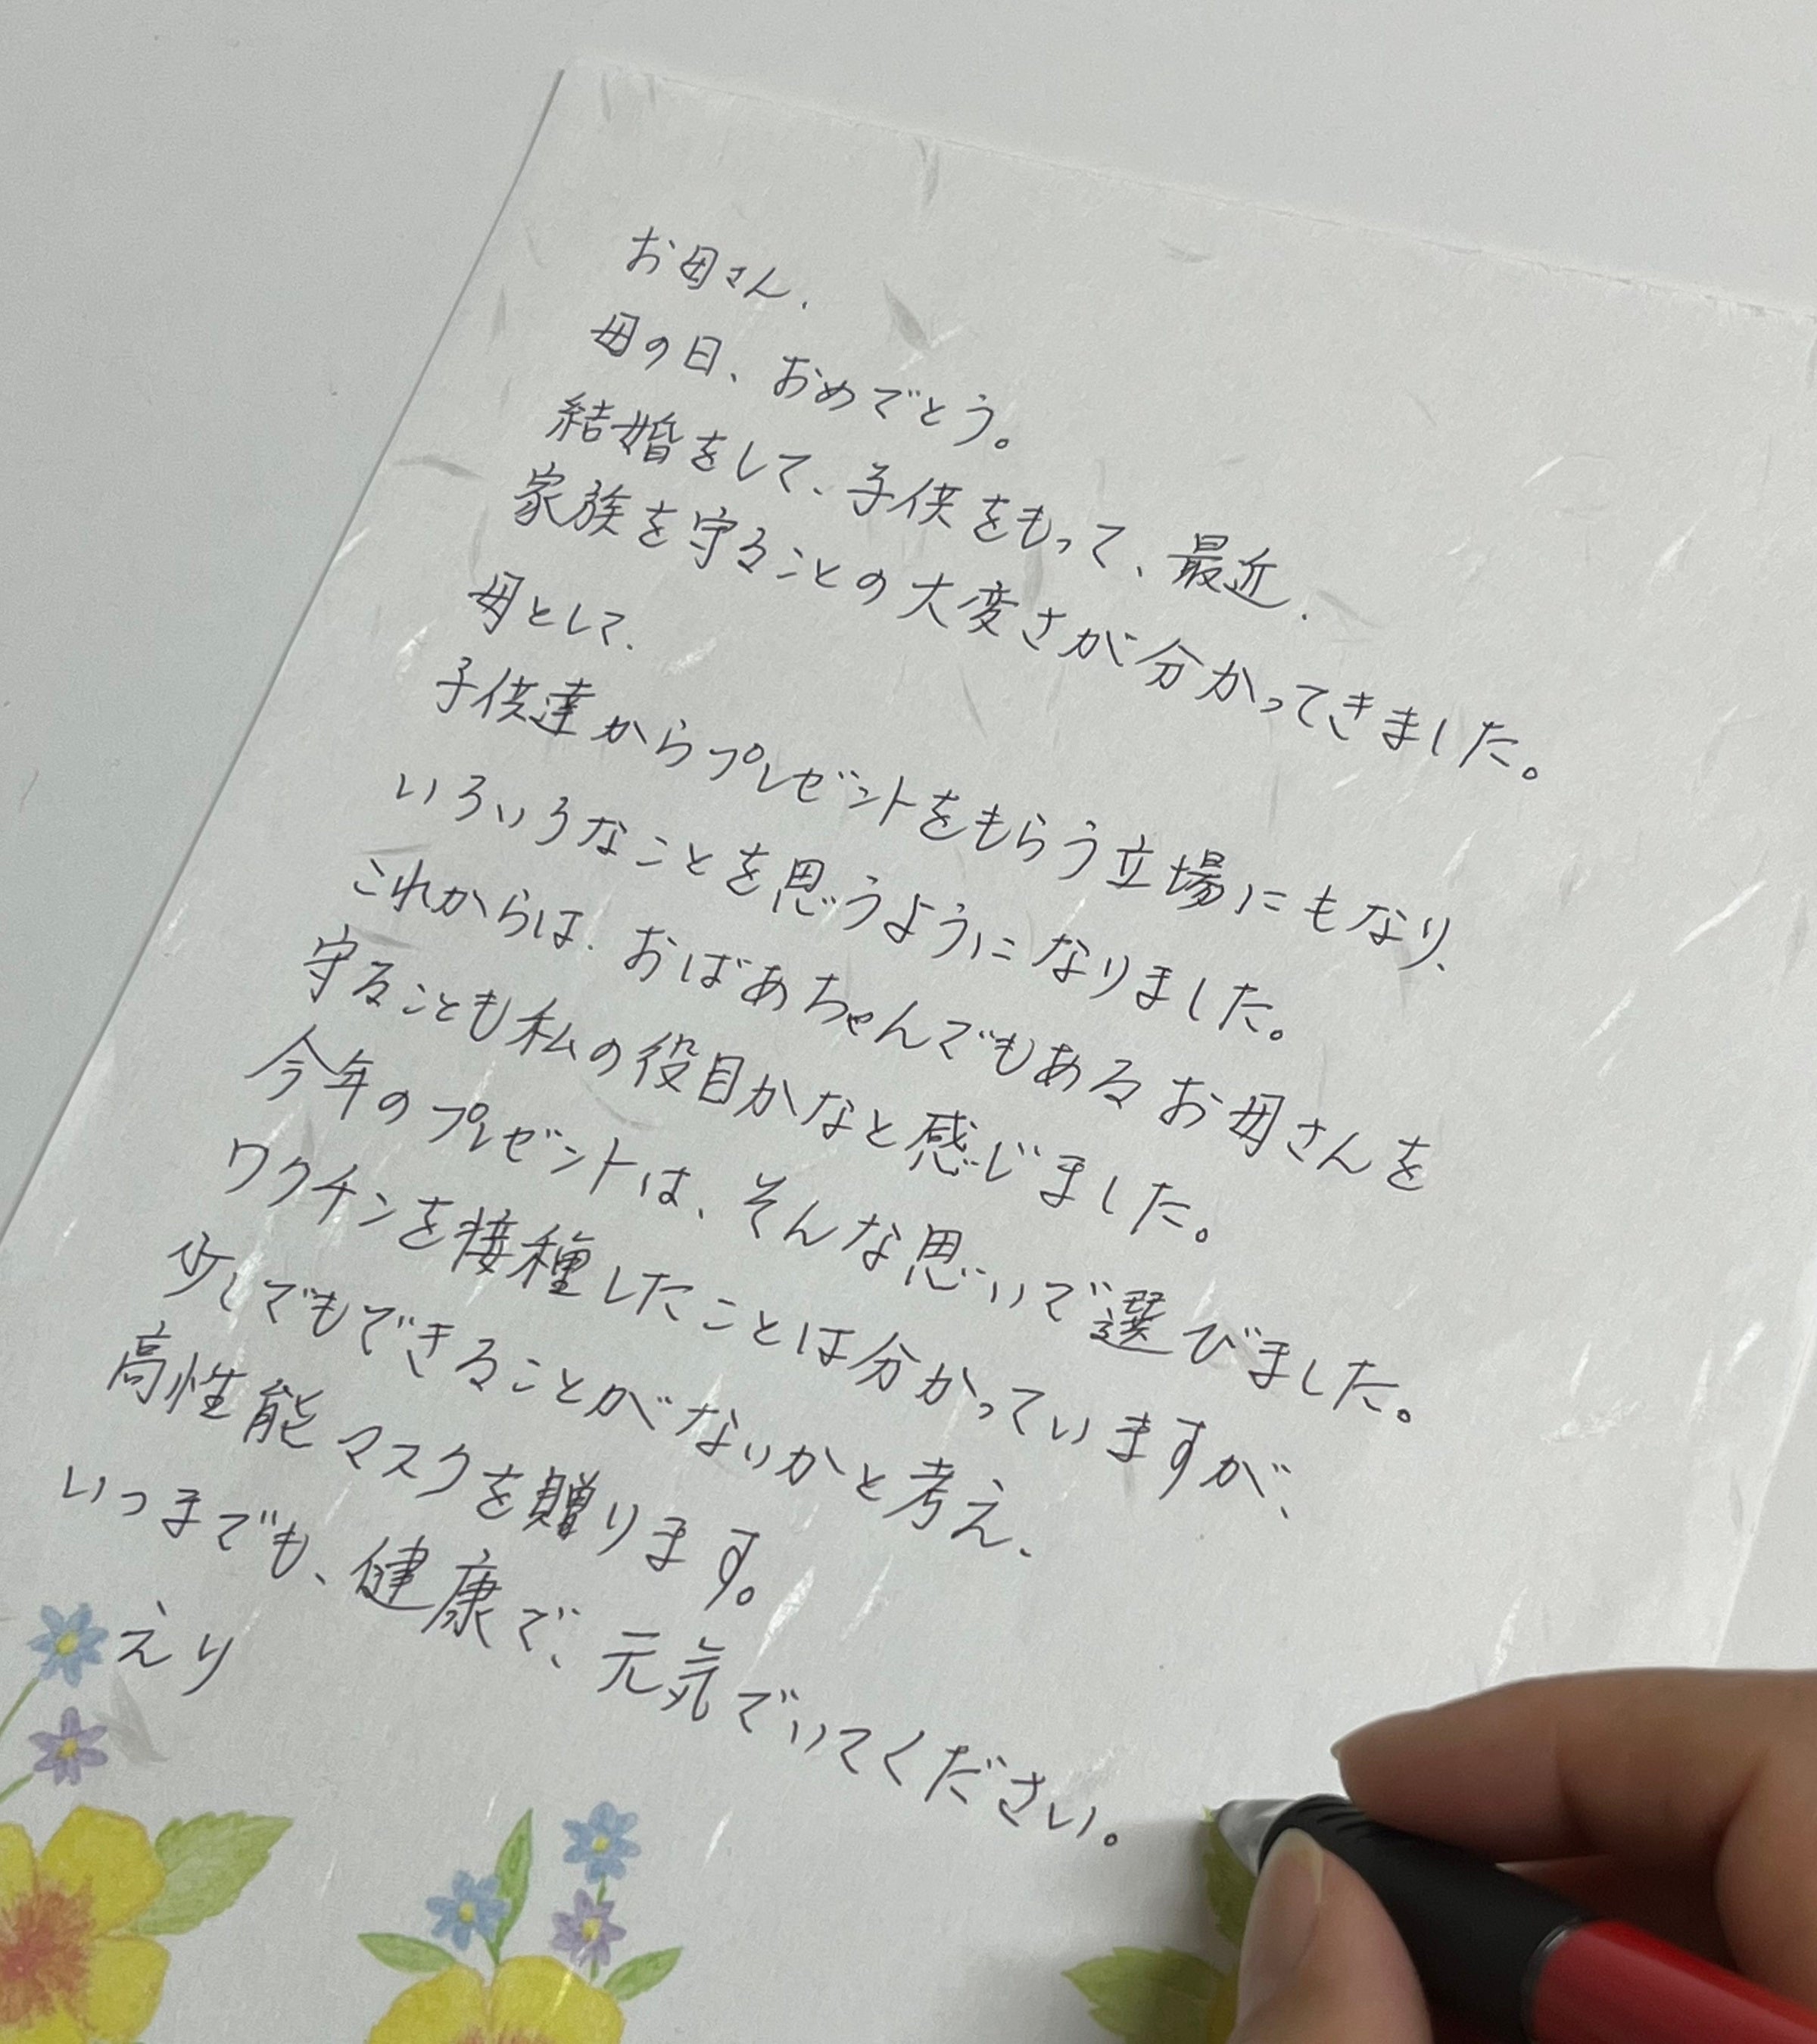 お母さん、
母の日、おめでとう。
結婚をして、子供をもって、最近、
家族を守ることの大変さが分かってきました。
母として、
子供達からプレゼントをもらう立場にもなり、
いろいろなことを思うようになりました。
これからは、おばあちゃんでもあるお母さんを
守ることも私の役目かなと感じました。
今年のプレゼントは、そんな思いで選びました。
ワクチンを接種したことは分かっていますが、
少しでもできることがないかと考え、
高性能マスクを贈ります。
いつまでも、健康で、元気でいてください。
えり